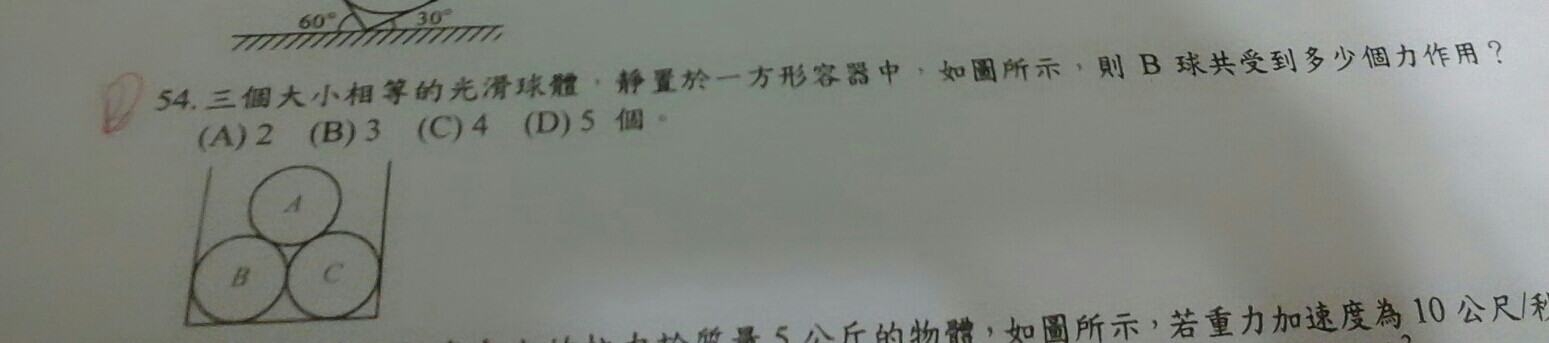 60° 30°
54. 三個大小相等的光滑球體，靜置於一方形容器中，如圖所示，則 B 球共受到多少個力作用？
(A) 2 (B) 3 (C) 4 (D) 5 個。
A
B C
質量 5 公斤的物體，如圖所示，若重力加速度為 10 公尺/秒